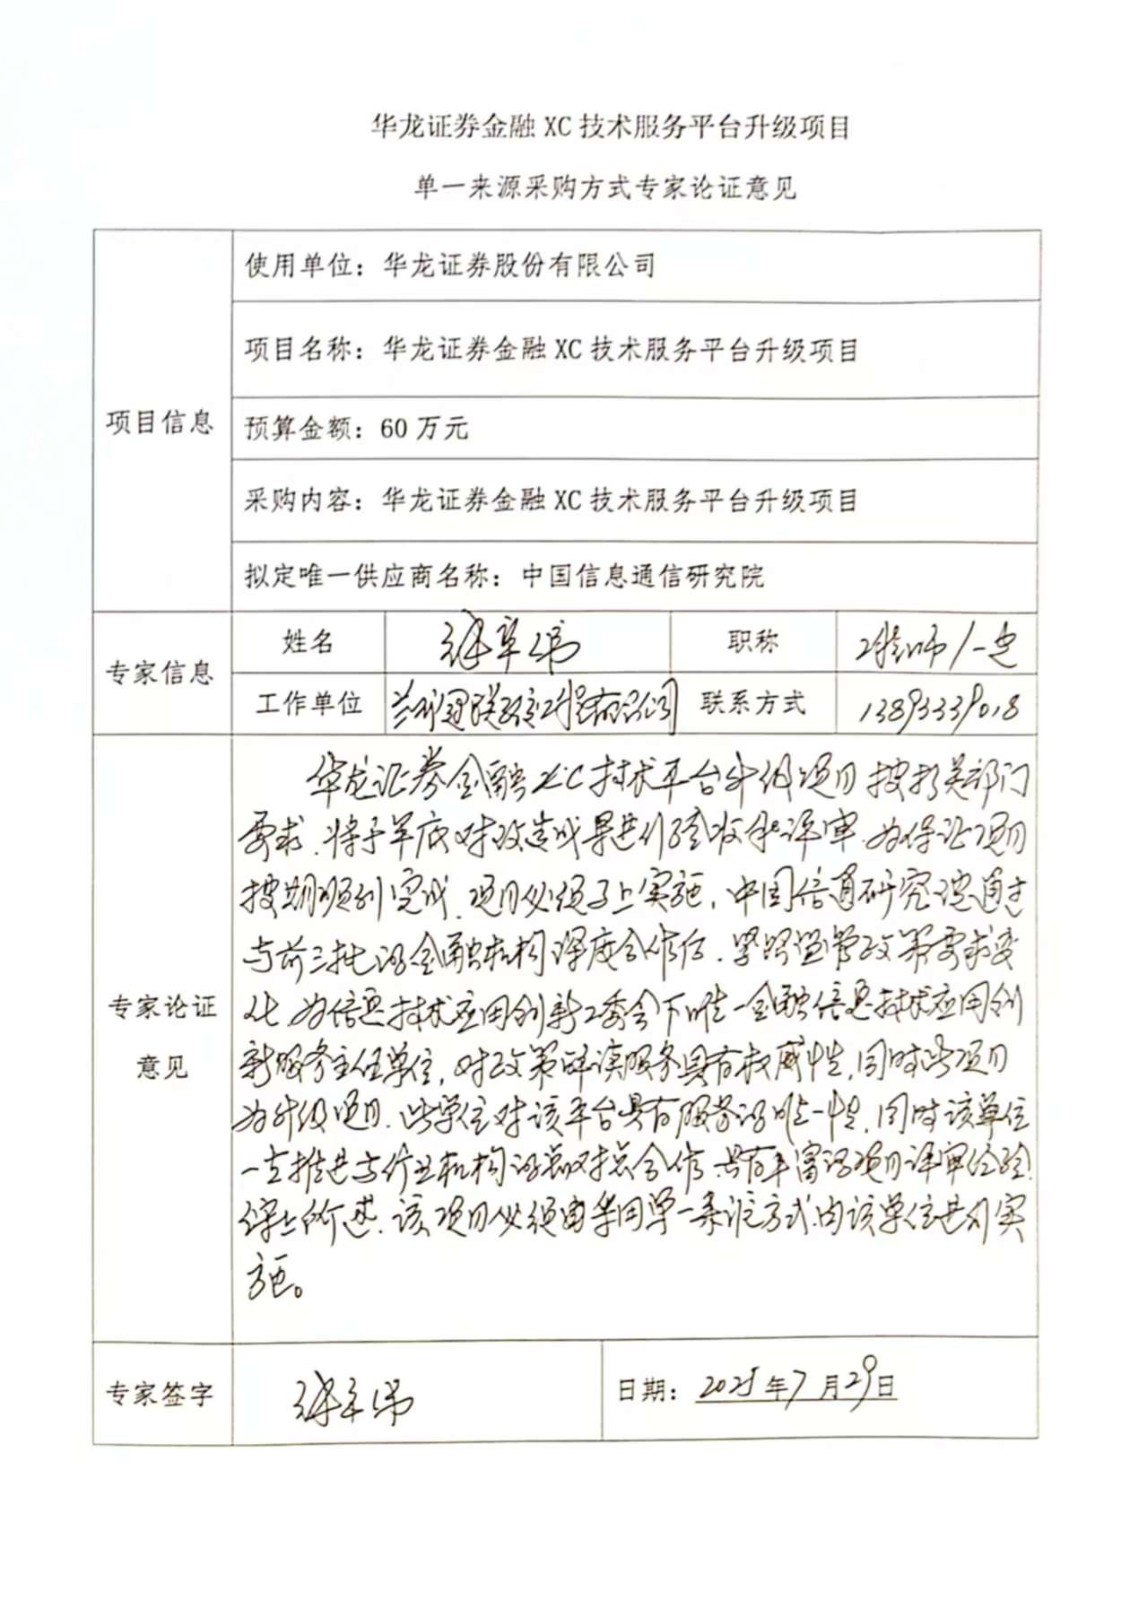 华龙证券金融 XC 技术服务平台升级项目
单一来源采购方式专家论证意见
项目信息
使用单位：华龙证券股份有限公司
项目名称：华龙证券金融 XC 技术服务平台升级项目
预算金额：60 万元
采购内容：华龙证券金融 XC 技术服务平台升级项目
拟定唯一供应商名称：中国信息通信研究院
专家信息
姓名
职称 工程师/一建
工作单位 有限公司
联系方式 13893339018
专家论证
意见
华龙证券金融XC技术平台升级项目按相关部门
要求，将于年底对改造成果进行验收和评审，为保证项目
按期顺利完成，项目必须马上实施，中国信通研究院通过
与前三批的金融机构深度合作后，紧跟监管政策要求变
化，为信息技术应用创新工委会下唯一金融信息技术应用创
新服务主任单位，对政策解读服务具有权威性，同时此项目
为升级项目，此单位对该平台具有服务的唯一性，同时该单位
一直推进与行业机构的总对总合作，具有丰富的项目评审经验，
综上所述，该项目必须采用单一来源方式，由该单位进行实
施。
专家签字
日期：2025年7月29日